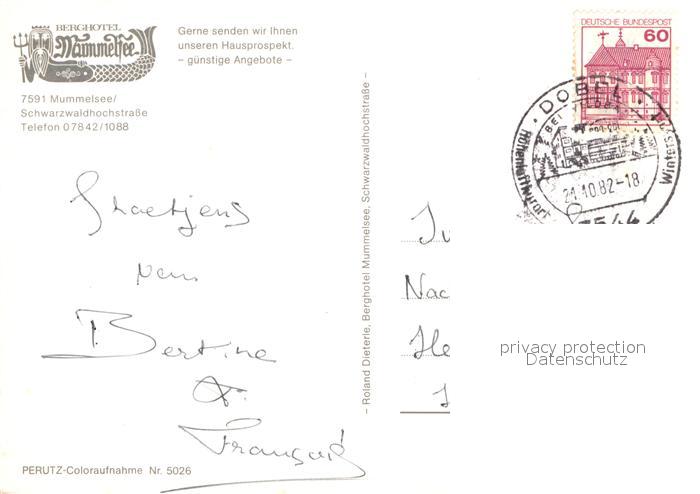 BERGHOTEL
Mummelsee
Gerne senden wir Ihnen
unseren Hausprospekt.
– günstige Angebote –
7591 Mummelsee/
Schwarzwaldhochstraße
Telefon 07842/1088
DEUTSCHE BUNDESPOST
60
DOBEL
Höhenluftkurort
Winter
21.10.82-18
7544
Groetjens
van
Bertine
&
François
– Roland Dieterle, Berghotel Mummelsee, Schwarzwaldhochstraße –
Nac
He
privacy protection
Datenschutz
PERUTZ-Coloraufnahme Nr. 5026